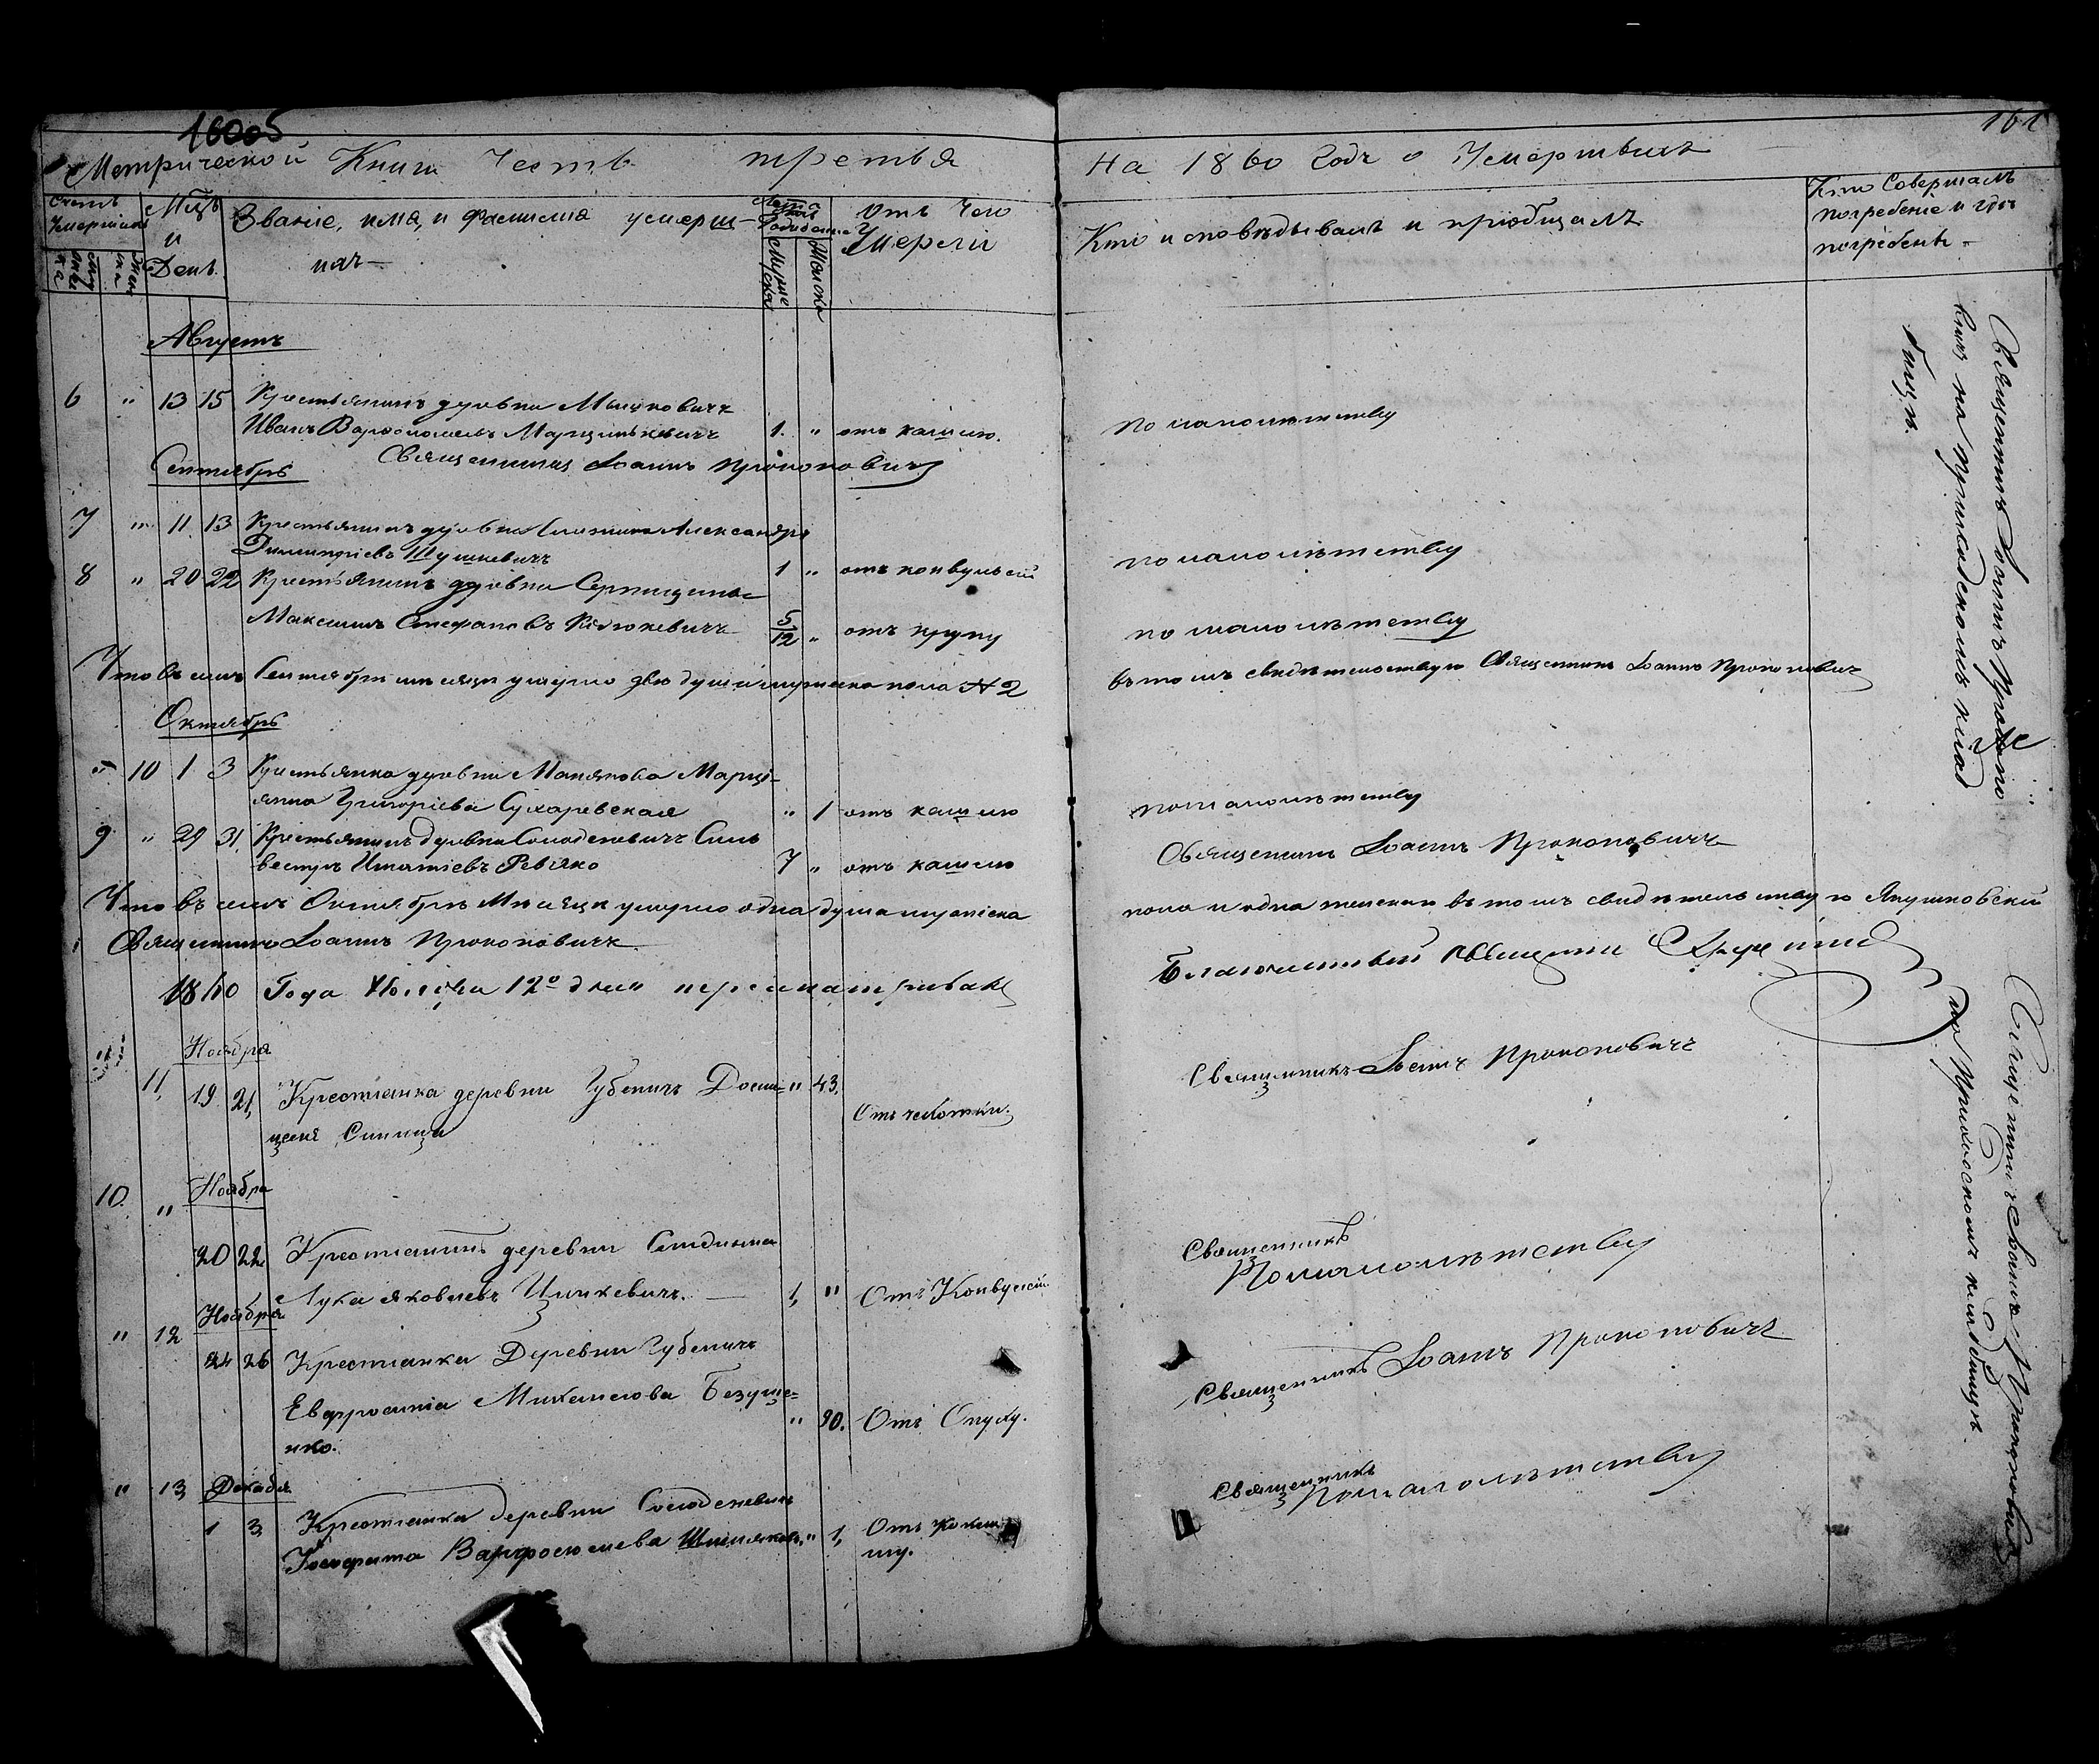 160об
161
Метрической Книги Часть третья
На 1860 Годъ о Умершихъ
Счетъ Умершихъ
Мцъ и День
Званіе, имя, и фамилія умерш-
ихъ
Мужеска
Женска
отъ Чего
Умерли
Кто исповѣдывалъ и пріобщалъ
Кто Совершалъ
погребеніе и гдѣ
погребены
Августъ
6 " 13 15 Крестьянинъ деревни
Иванъ Варѳоломеевъ Марцинкевичъ 1. " отъ кашлю.
по малолѣтству
Священникъ Іоаннъ Прокоповичъ
Сентябрь
7 " 11. 13 Крестьянинъ деревни Александръ
Димитріевъ Шушкевичъ 1 " отъ конвульсій
по малолѣтству
8 " 20 22 Крестьянинъ деревни
Максимъ Стефановъ 5/12 " отъ крупу
по малолѣтству
Что въ семъ Сентябрѣ мѣсяцѣ умерло двѣ души мужеска пола № 2
въ томъ свидѣтельствую Священникъ Іоаннъ Прокоповичъ
Октябрь
" 10 1 3 Крестьянка деревни Манякова Марці-
янна Григоріева Сухаревская " 1 отъ кашлю
по малолѣтству
9 " 29 31. Крестьянинъ деревни Солоденевичъ Силь
вестръ Игнатіевъ Ревяко 7 " отъ кашлю
Священникъ Іоаннъ Прокоповичъ
Что въ семъ Октябрѣ Мѣсяцѣ умерло одна душа мужеска
пола и одна женская въ томъ свидѣтельствую Янушковскій
Священникъ Іоаннъ Прокоповичъ
1860 Года Ноября 12º дня пересматривалъ
Благочинный Священникъ
Ноября
11, 19 21, Крестіанка деревни Губеничъ Доми-
целя Синица " 43. Отъ чехотки.
Священникъ Іоаннъ Прокоповичъ
10. " Ноября
20 22 Крестіанинъ деревни
Лука Яковлевъ Цишкевичъ. 1, " Отъ Конвулсій
Священникъ
По малолѣтству
Ноября
" 12 24 26 Крестіанка Деревни Губеничъ
Евфросинія Михаилова Безуще-
нко. " 90. Отъ Опуху.
Священникъ Іоаннъ Прокоповичъ
" 13 Декабря
1 3, Крестіанка деревни Солоденевичъ
Іосафата Варфоломеева " 1, Отъ кашлю.
Священникъ
По малолѣтству
Священникъ Іоаннъ Прокопо
вичъ на приходскомъ клад
бищѣ.
Священникъ Іоаннъ Прокоповичъ
на Приходскомъ кладбищѣ.